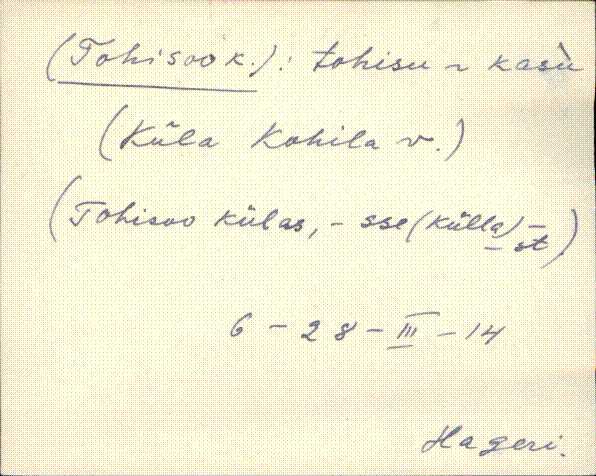 (Tohisoo k.): tohisu ~ kasù
(Küla Kohila v.)
(Tohisoo külas, - sse (külla) - st)
6 - 28 - III - 14
Hageri.